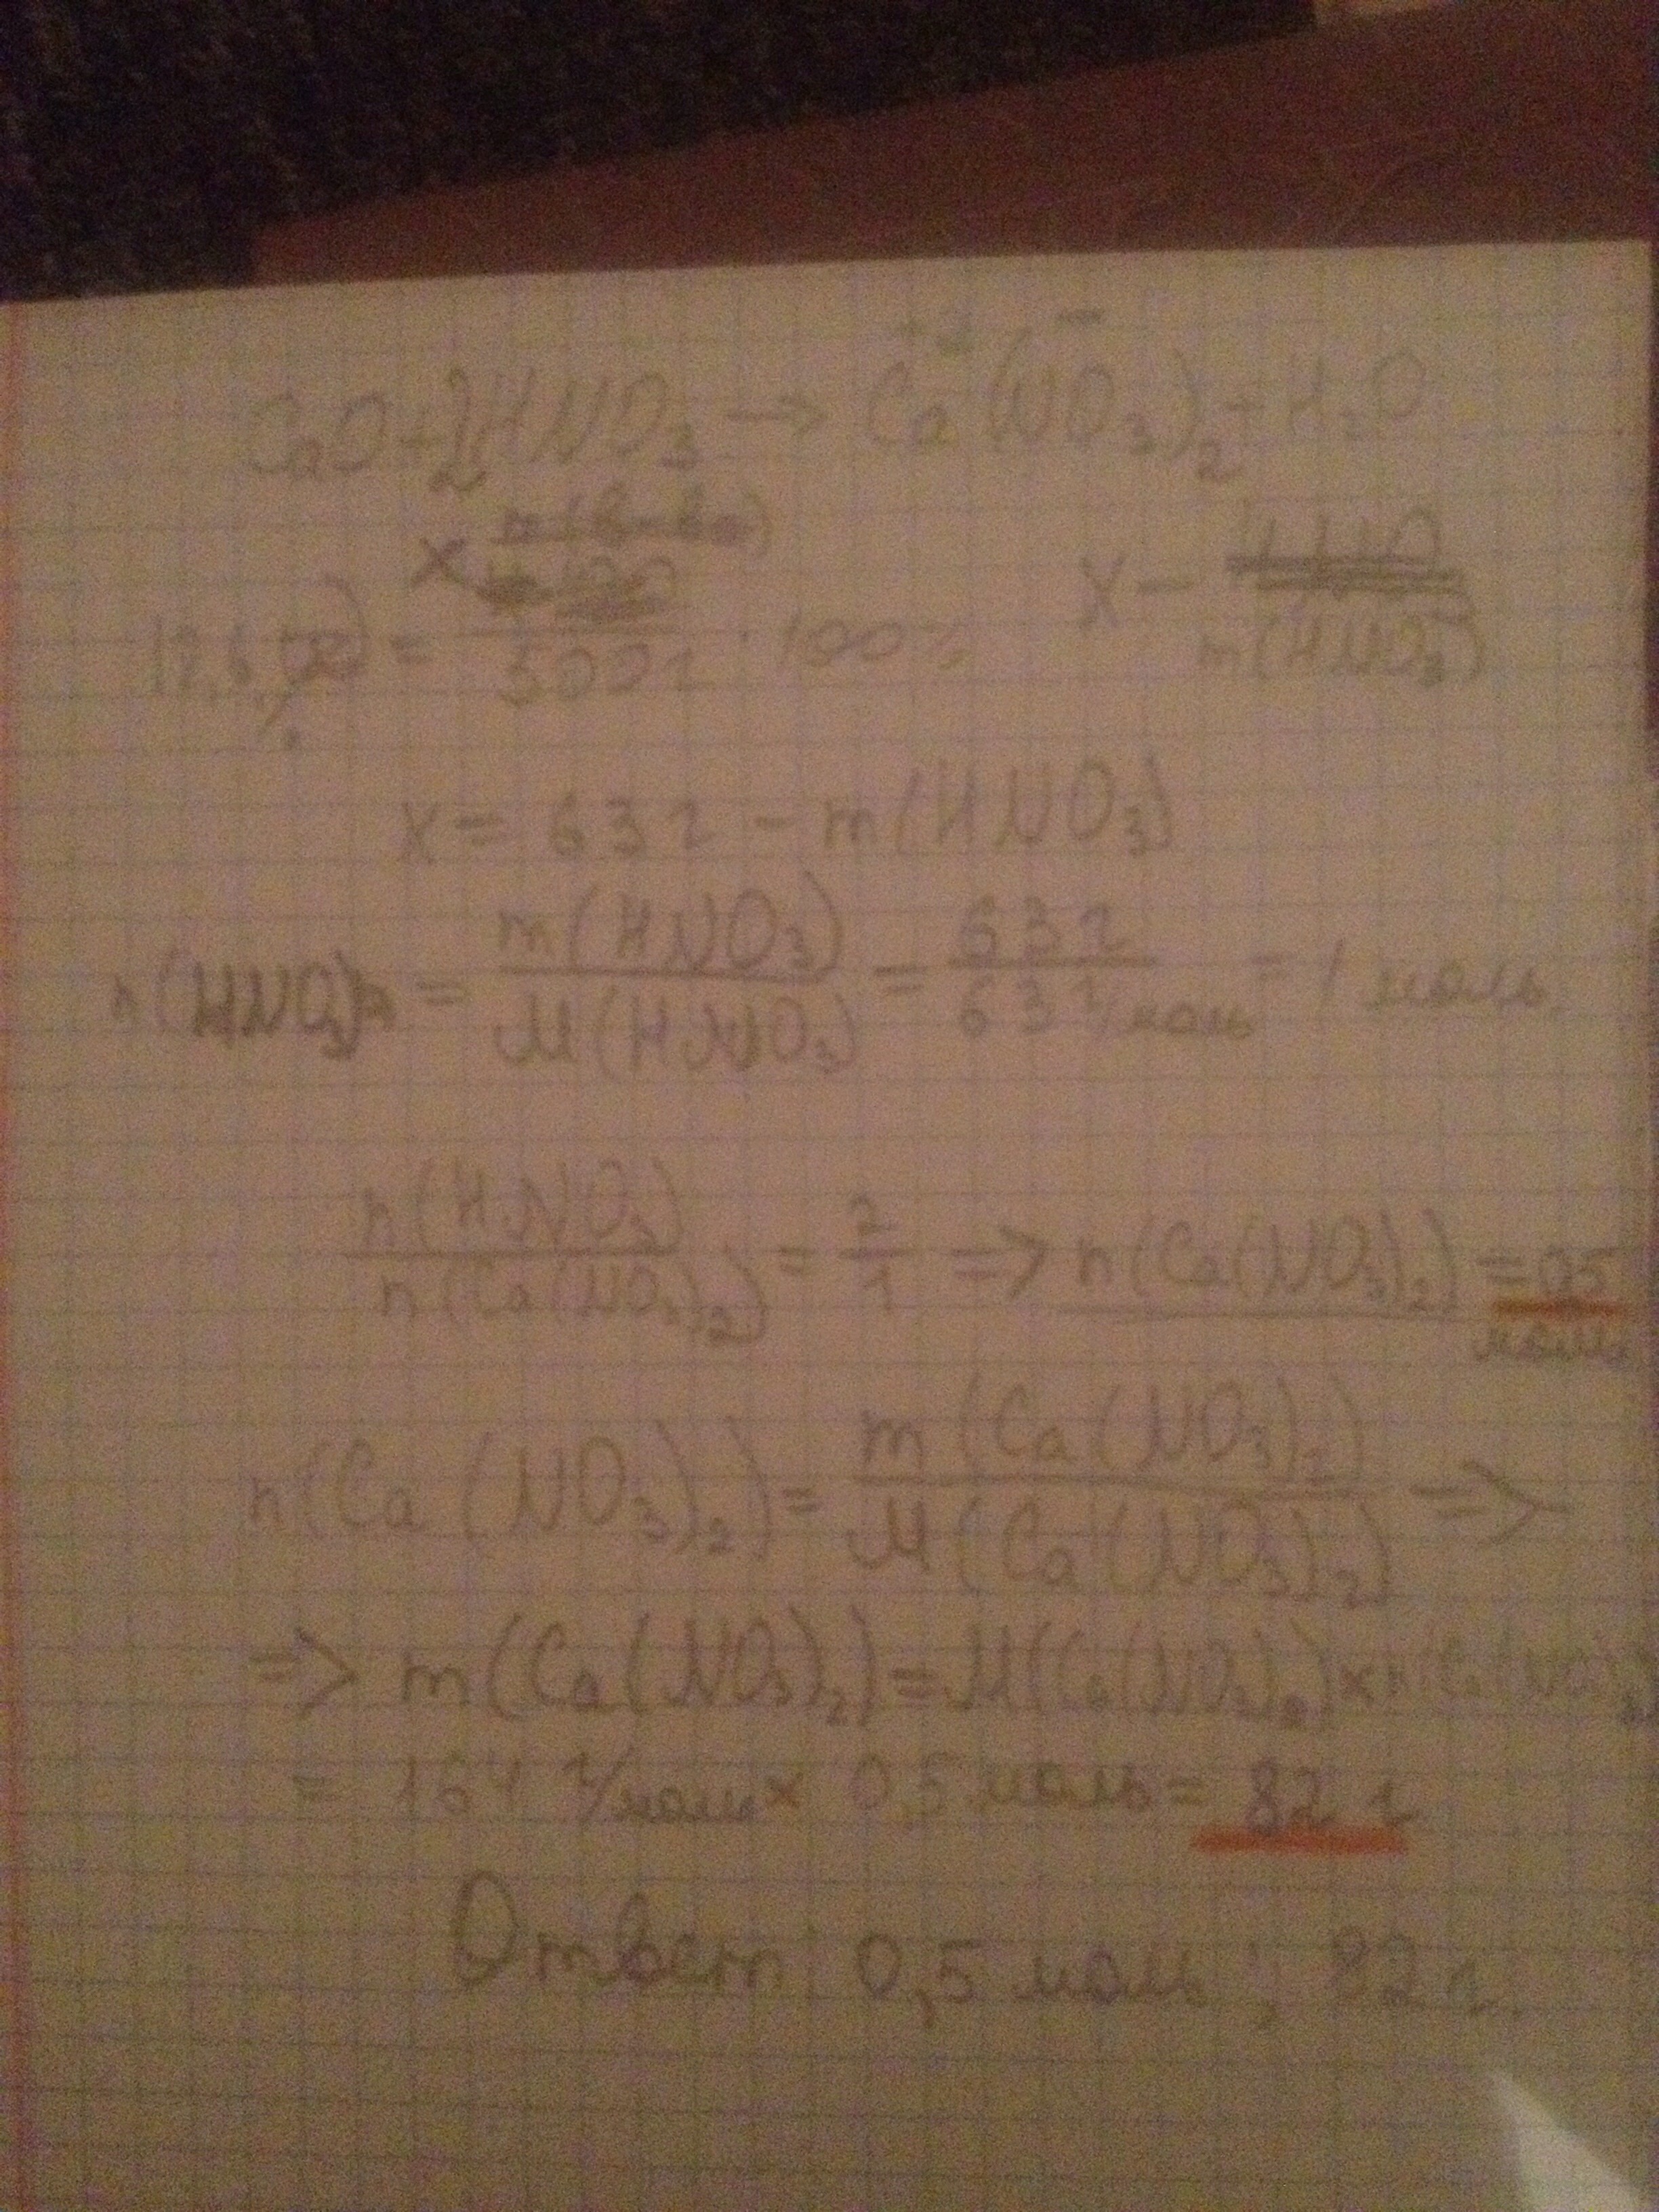 +2 −
CaO + 2HNO₃ → Ca(NO₃)₂ + H₂O
12,6 = x / 500 г · 100%
x – m(HNO₃)
x = 63 г – m(HNO₃)
n(HNO₃) = m(HNO₃) / M(HNO₃) = 63 г / 63 г/моль = 1 моль
n(HNO₃) / n(Ca(NO₃)₂) = 2 / 1 => n(Ca(NO₃)₂) = 0,5 моль
n(Ca(NO₃)₂) = m(Ca(NO₃)₂) / M(Ca(NO₃)₂) =>
=> m(Ca(NO₃)₂) = M(Ca(NO₃)₂) × n(Ca(NO₃)₂)
= 164 г/моль × 0,5 моль = 82 г
Ответ: 0,5 моль; 82 г.